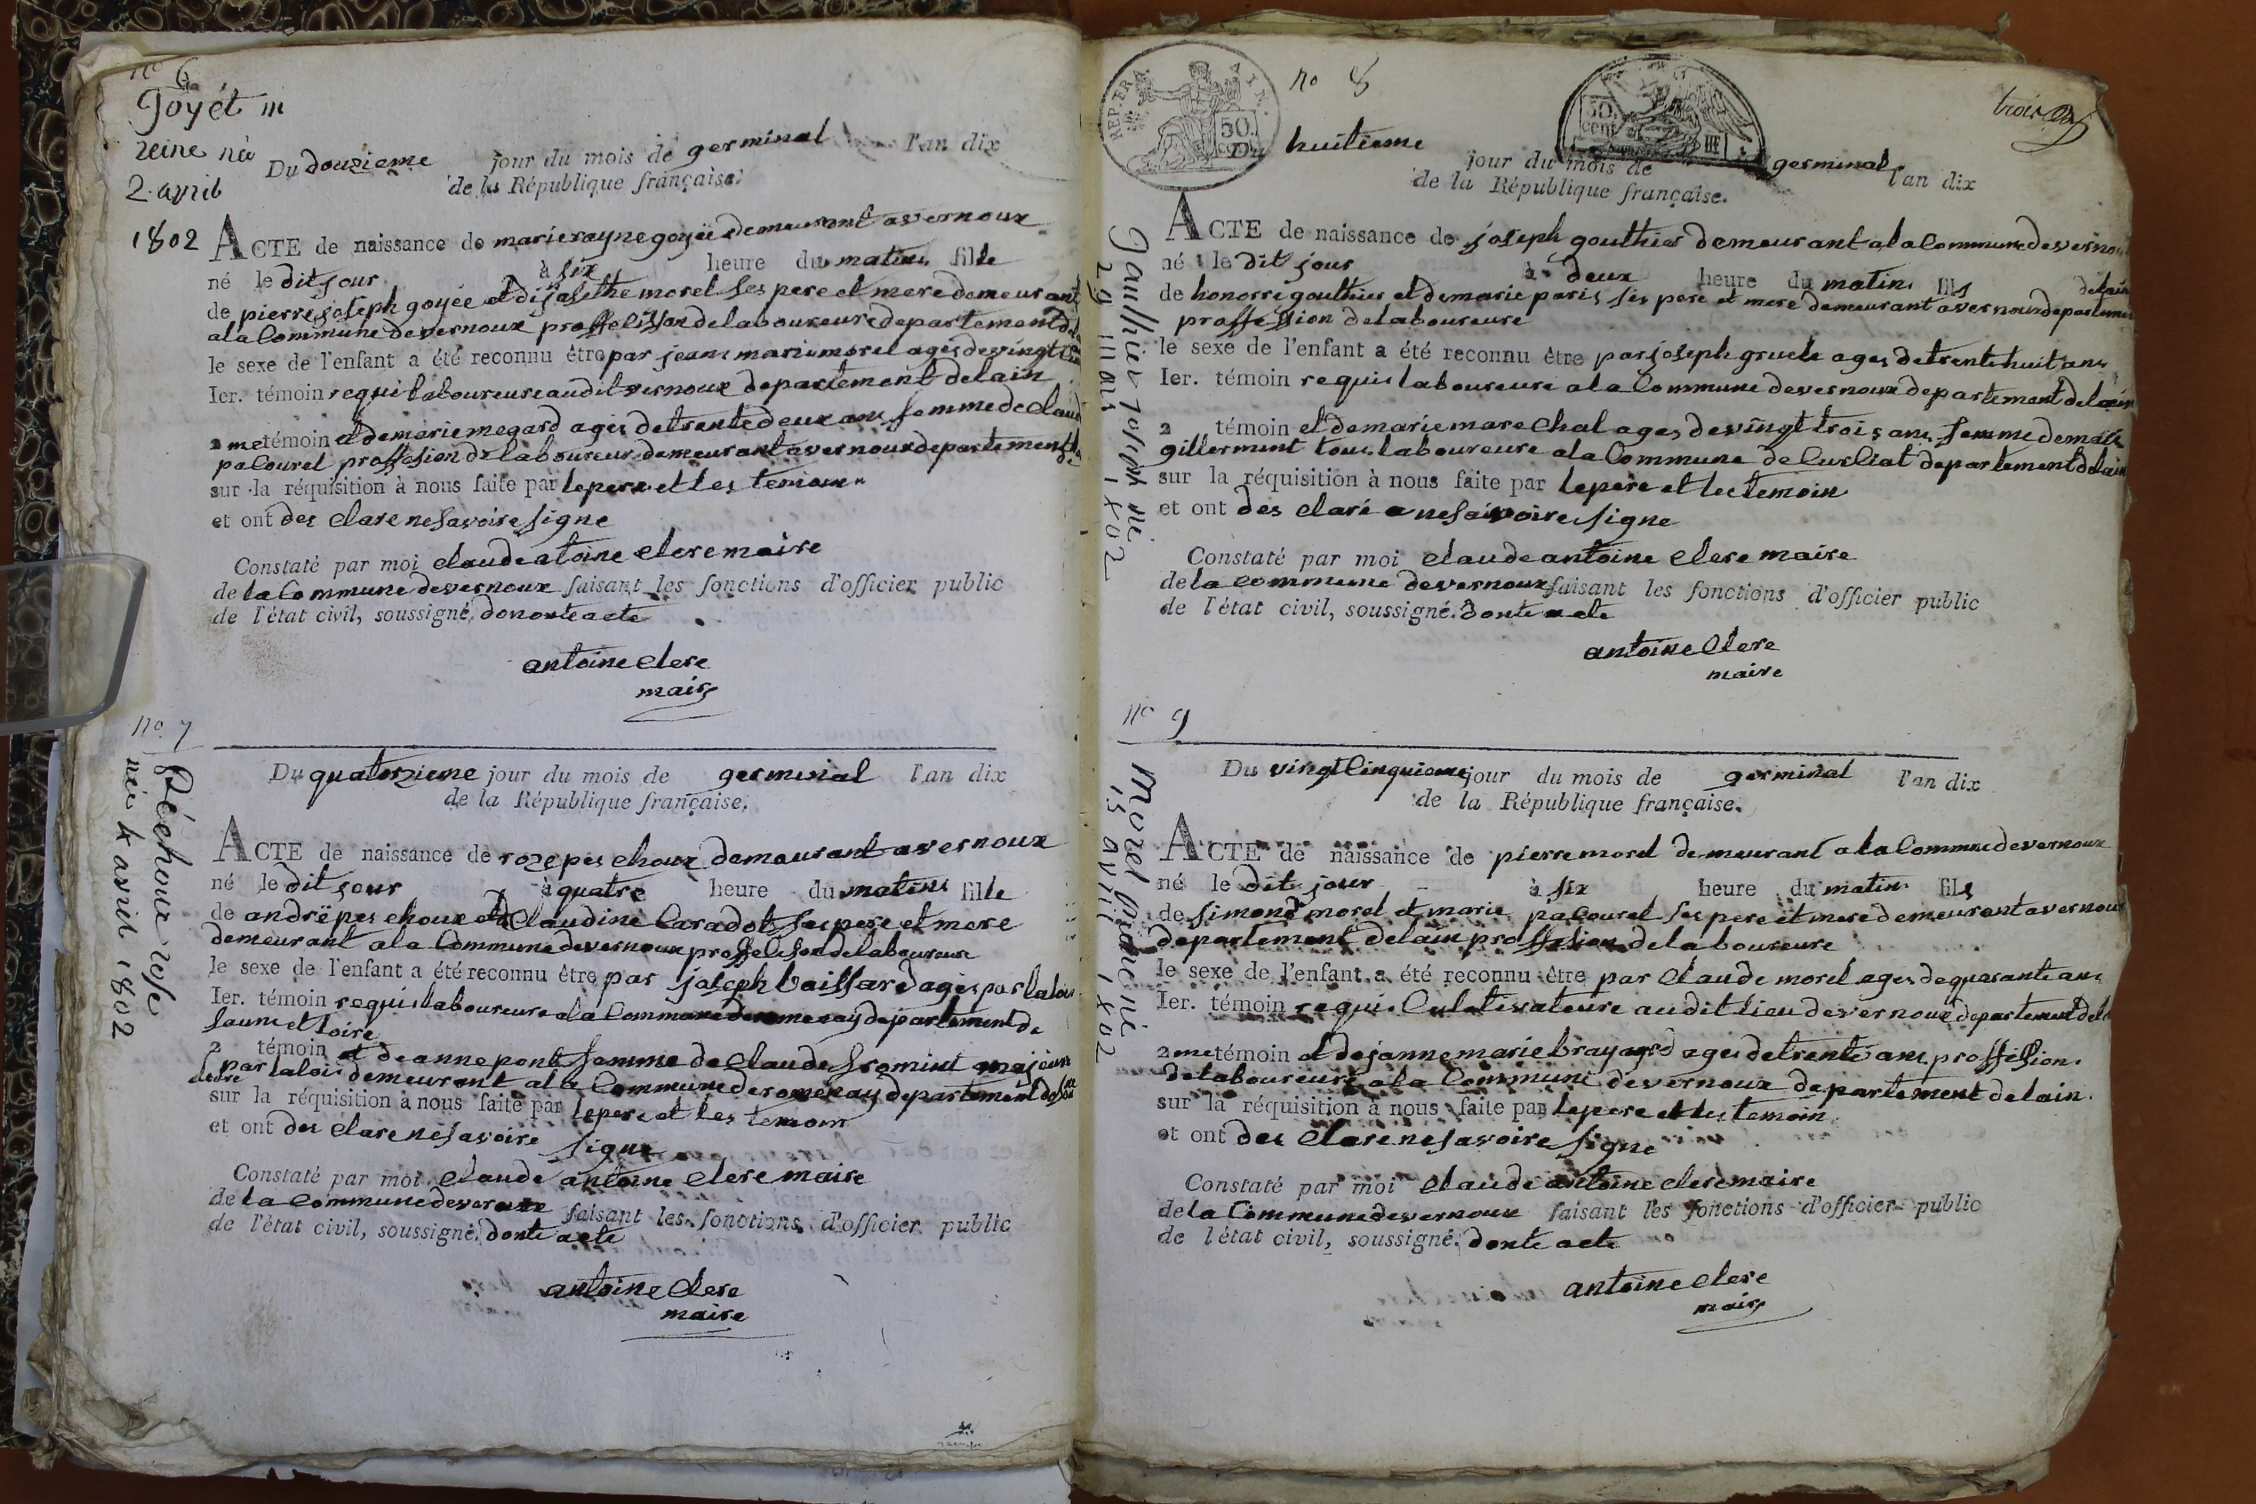 no 6
Goyét m
reine née
2 avril
1802
Du douzieme jour du mois de germinal l'an dix
de la République française.
ACTE de naissance de marie rayne goyée demeurant a vernoux
né le dit jour à six heure du matin fille
de pierre joseph goyée et di josethe morel ses pere et mere demeurant
a la Commune de vernoux proffeliſson de laboureure departement de
le sexe de l'enfant a été reconnu être par jean marie morel ages de vingt
Ier. témoin requi laboureure audit vernoux departement de lain
2 me témoin et de marie megard ages de trente deux ans femme de Claud
pacouret proffesion de laboureur demeurant a vernoux departement
sur la réquisition à nous faite par le pere et les temoin
et ont des clare ne savoire signe
Constaté par moi claude atoine clere maire
de la Commune de vernoux faisant les fonctions d'officier public
de l'état civil, soussigné, dononte acte
antoine clere
maire
no 7
Péchoux rose
née 4 avril 1802
Du quatorzieme jour du mois de germinal l'an dix
de la République française.
ACTE de naissance de roze pes choux demeurant a vernoux
né le dit jour à quatre heure du matin fille
de andrë pes choux et Claudine Caradot ses pere et mere
demeurant a la Commune de vernoux proffelison de laboureure
le sexe de l'enfant a été reconnu être par joseph vaissard ages par la loi
Ier. témoin requis laboureure a la Commune de romenaÿ departement de
saune et loire
2 témoin et de anne pont femme de Claude fromint majeure
par la loi demeurant a la Commune de romenay departement de
sur la réquisition à nous faite par le pere et les temoin
et ont des clare ne savoire signe
Constaté par moi Claude antoine clere maire
de la Commune de vernoux faisant les fonctions d'officier public
de l'état civil, soussigné, donte acte
antoine Clere
maire
REP. FRA. 50. cen.
no 8
50. cent
trois
Gaulhier joseph né
29 Mars 1802
Du huitieme jour du mois de germinal l'an dix
de la République française.
ACTE de naissance de joseph gouthier demeurant a la Commune de vernou
né le dit jour à deux heure du matin fils
de lain
de honorrè gouthier et de marie paris ses pere et mere demeurant a vernoux departement
proffession de laboureure
le sexe de l'enfant a été reconnu être par joseph gruele ages de trente huit ans
Ier. témoin requis laboureure a la Commune de vernoux departement de lain
2 témoin et de marie marechal ages de vingt trois ans femme de
gillermint tous laboureure a la Commune de Curciat departement de lain
sur la réquisition à nous faite par le pere et les temoin
et ont des clarè a ne savoire signe
Constaté par moi claude antoine clere maire
de la commune de vernoux faisant les fonctions d'officier public
de l'état civil, soussigné. donte acte
antoine Clere
maire
no 9
Morel pierre né
15 avril 1802
Du vingt Cinquieme jour du mois de germinal l'an dix
de la République française.
ACTE de naissance de pierre morel demeurant a la Commune de vernoux
né le dit jour à six heure du matin fils
de simond morel et marie pacouret ses pere et mere demeurant a vernoux
departement de lain proffesion de laboureure
le sexe de l'enfant a été reconnu être par Claude morel ages de quarante ans
Ier. témoin requi Culativateure audit lieu de vernoux departement de l
2 me témoin et de janne marie brayard ages de trente ans proffession
de laboureure a la Commune de vernoux departement de lain.
sur la réquisition à nous faite par le pere et les temoin
et ont des clare ne savoire signe
Constaté par moi Claude antoine clere maire
de la Commune de vernoux faisant les fonctions d'officier public
de l'état civil, soussigné. donte acte
antoine clere
maire